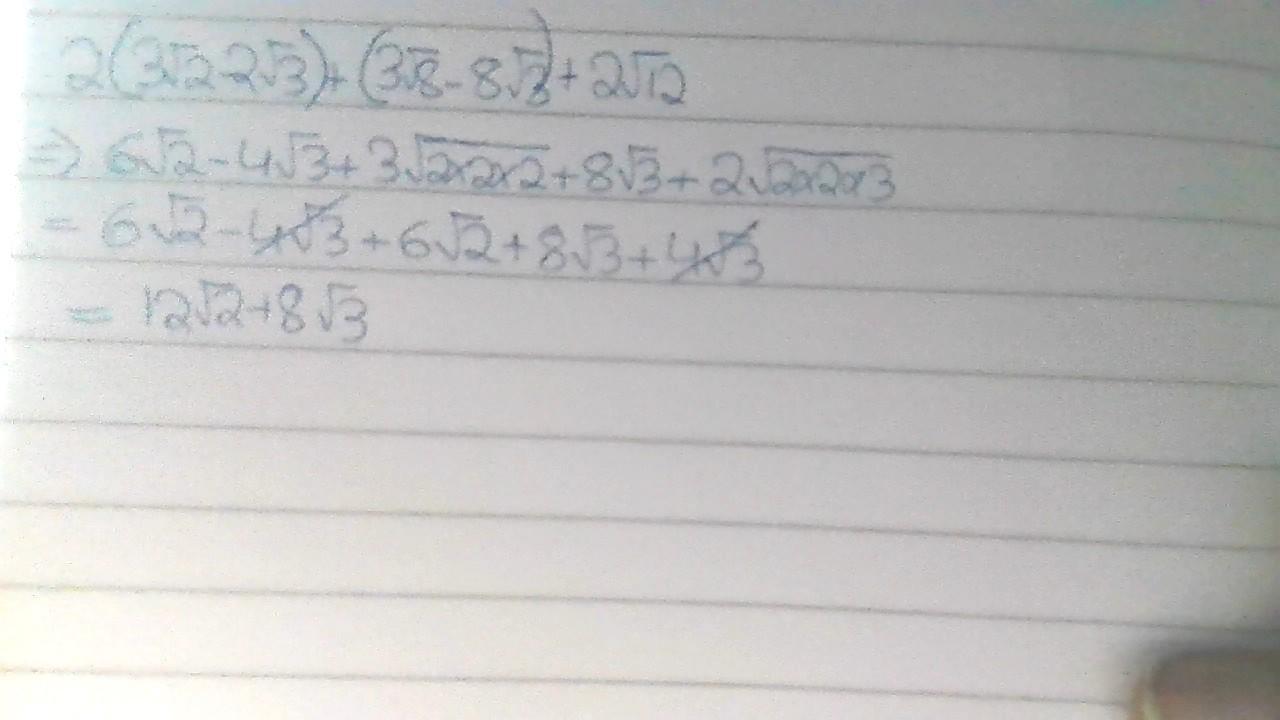 2(3√2-2√3)+(3√8-8√3)+2√12
⇒ 6√2-4√3+3√2×2×2+8√3+2√2×2×3
= 6√2-4√3+6√2+8√3+4√3
= 12√2+8√3